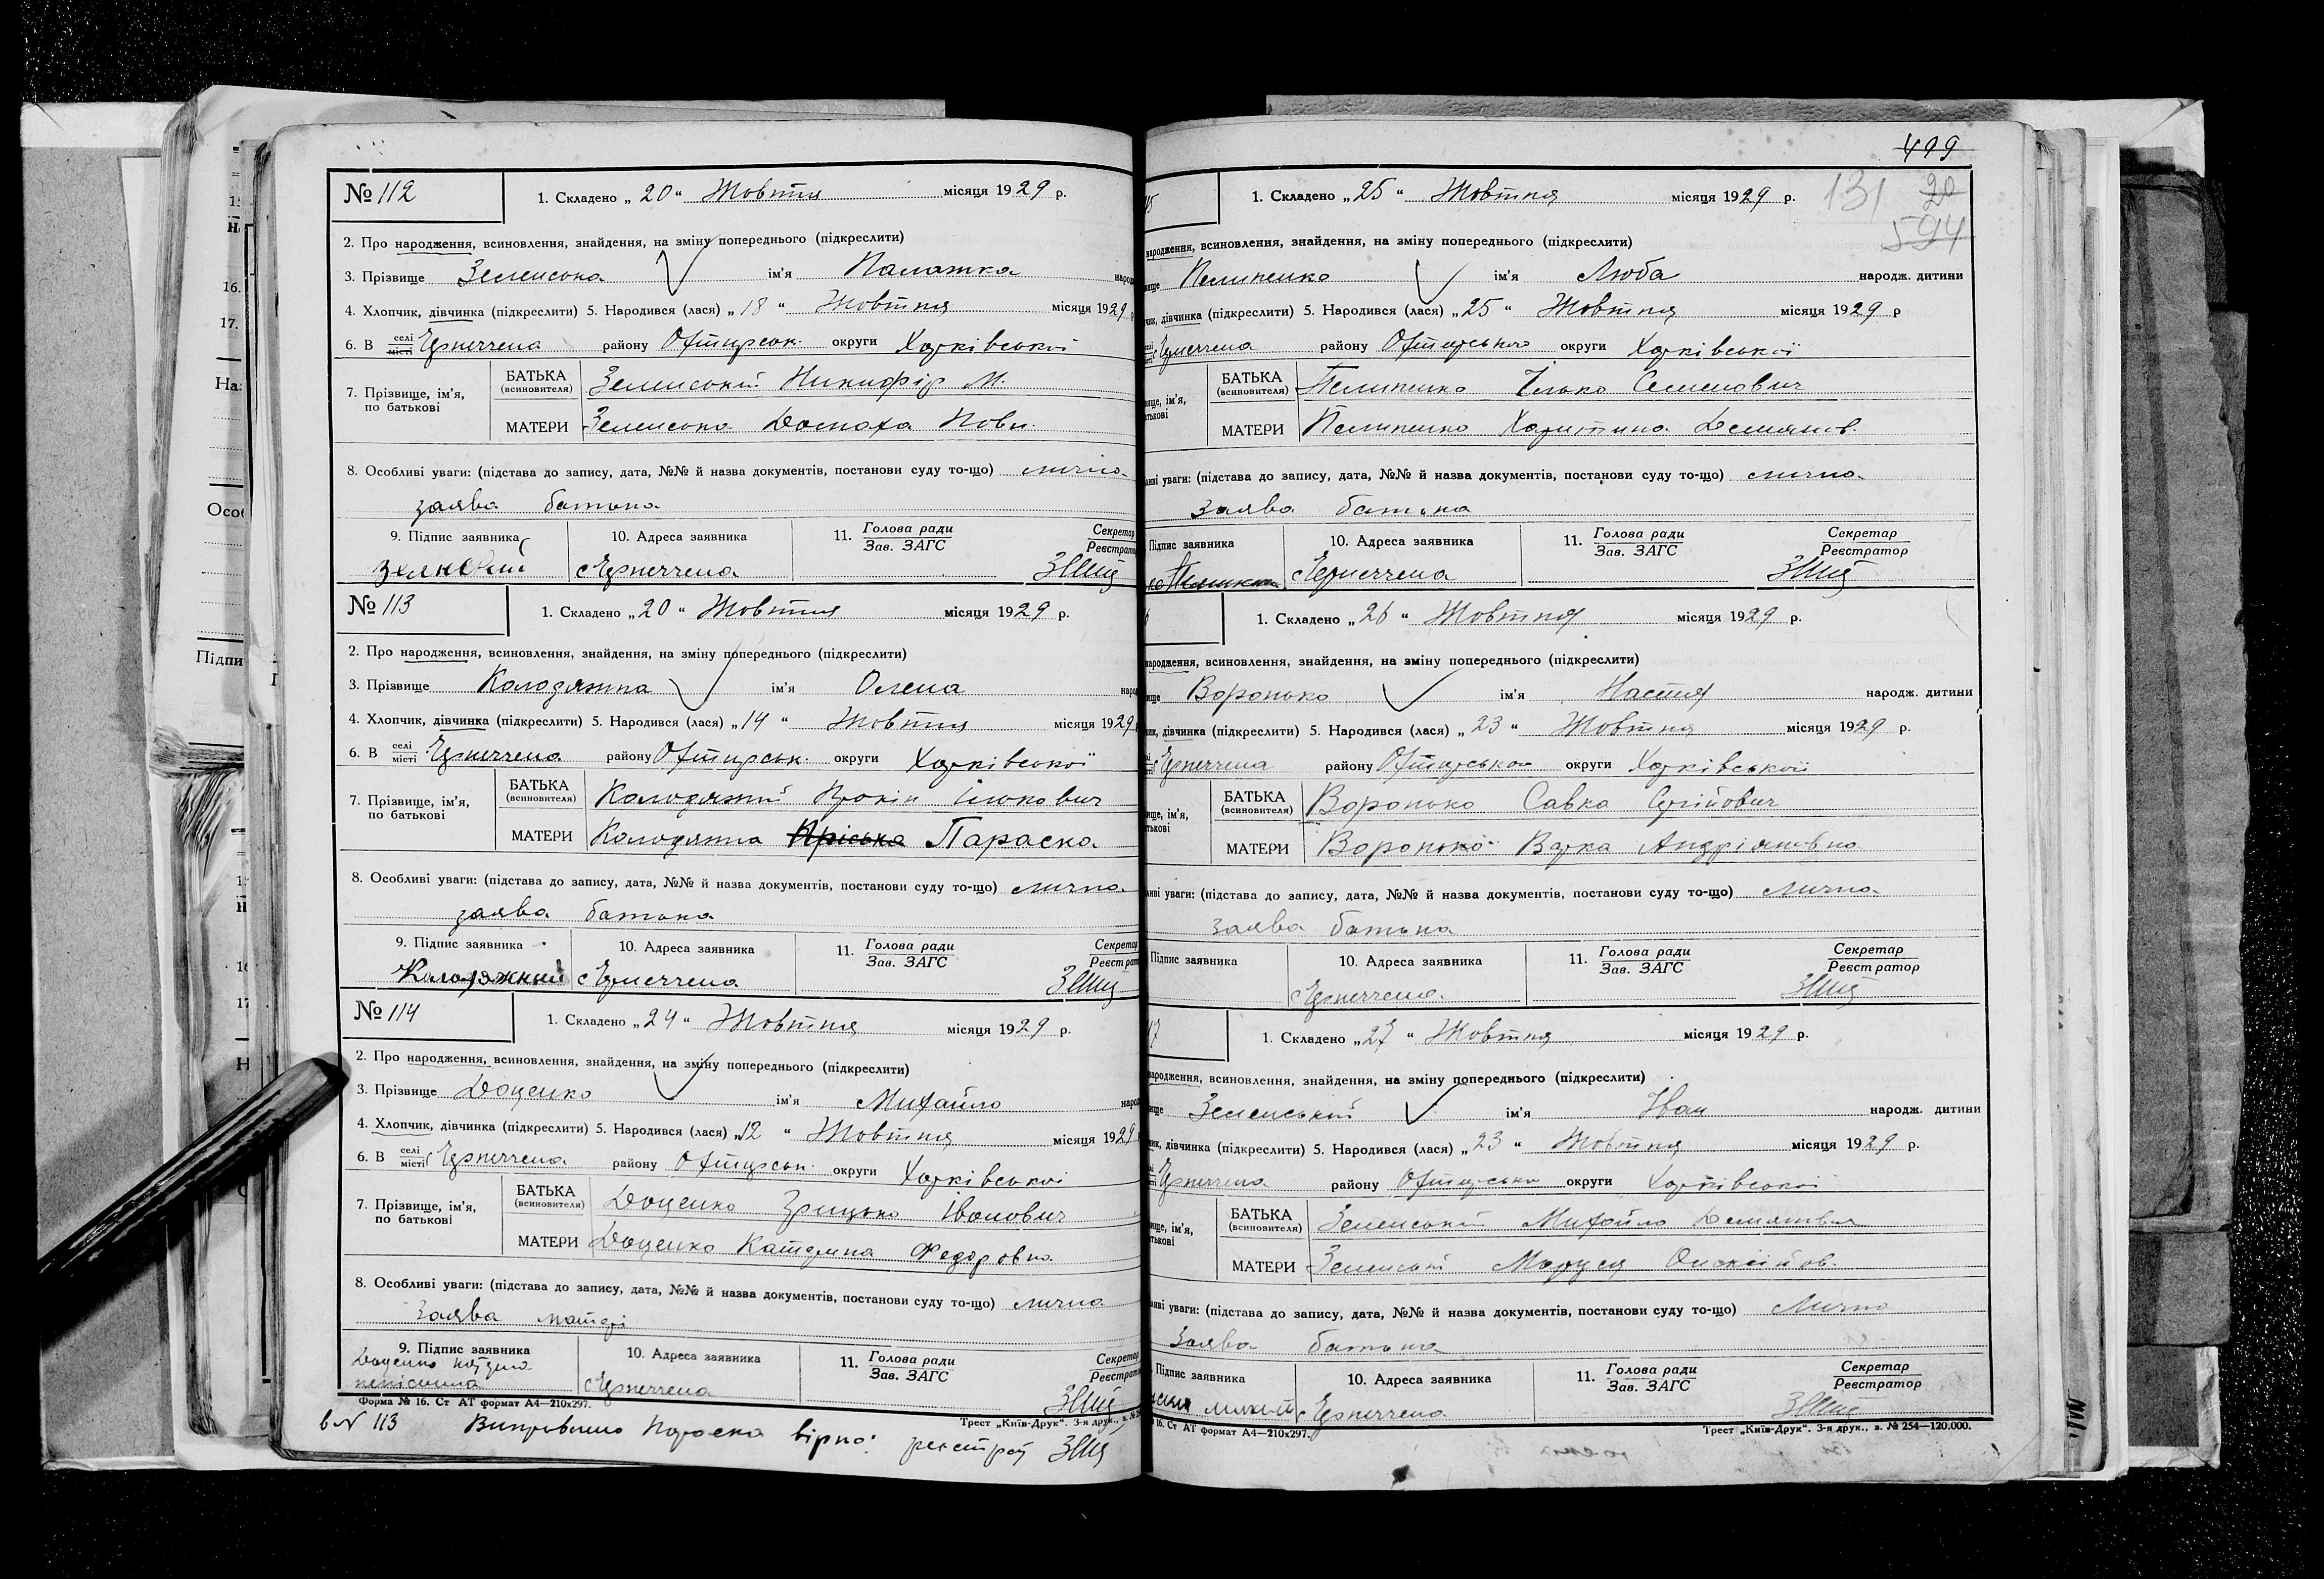 № 112
1. Складено „ 20 “ Жовтня місяця 1929 р.
2. Про народження, всиновлення, знайдення, на зміну попереднього (підкреслити)
3. Прізвище Зеленська ім'я Палажка народ
4. Хлопчик, дівчинка (підкреслити) 5. Народився (лася) „ 18 “ Жовтня місяця 1929 р
6. В селі місті району Охтирськ. округи Харківської
7. Прізвище, ім'я, по батькові
БАТЬКА (всиновителя) Зеленський Никифір М.
МАТЕРИ Зеленська Домаха
8. Особливі уваги: (підстава до запису, дата, №№ й назва документів, постанови суду то-що) лична
заява батька
9. Підпис заявника 10. Адреса заявника 11. Голова ради Зав. ЗАГС Секретар Реєстрато
№ 113
1. Складено „ 20 “ Жовтня місяця 1929 р.
2. Про народження, всиновлення, знайдення, на зміну попереднього (підкреслити)
3. Прізвище Колодяжна ім'я Олена народ
4. Хлопчик, дівчинка (підкреслити) 5. Народився (лася) „ 14 “ Жовтня місяця 1929 р
6. В селі місті району Охтирськ. округи Харківської
7. Прізвище, ім'я, по батькові
БАТЬКА (всиновителя) Колодяжний Прокіп Ількович
МАТЕРИ Колодяжна Пріська Параска
8. Особливі уваги: (підстава до запису, дата, №№ й назва документів, постанови суду то-що) лична
заява батька
9. Підпис заявника 10. Адреса заявника 11. Голова ради Зав. ЗАГС Секретар Реєстрат
Колодяжний
№ 114
1. Складено „ 24 “ Жовтня місяця 1929 р.
2. Про народження, всиновлення, знайдення, на зміну попереднього (підкреслити)
3. Прізвище Доценко ім'я Михайло народ
4. Хлопчик, дівчинка (підкреслити) 5. Народився (лася) „ 12 “ Жовтня місяця 1929
6. В селі місті району Охтирськ. округи Харківської
7. Прізвище, ім'я, по батькові
БАТЬКА (всиновителя) Доценко Грицько Іванович
МАТЕРИ Доценко Катерина Федоровна
8. Особливі уваги: (підстава до запису, дата, №№ й назва документів, постанови суду то-що) лична
Заява матері
9. Підпис заявника 10. Адреса заявника 11. Голова ради Зав. ЗАГС Секретар Реєстрат
Доценко
Форма № 16. Ст АТ формат А4—210х297. Трест „Київ-Друк“. 3-я друк., з. №
в № 113 Виправлено Параска вірно:
499
131 20
594
15
1. Складено „ 25 “ Жовтня місяця 1929 р.
народження, всиновлення, знайдення, на зміну попереднього (підкреслити)
Пелипенко ім'я Люба народж. дитини
дівчинка (підкреслити) 5. Народився (лася) „ 25 “ Жовтня місяця 1929 р
району Охтирського округи Харківської
БАТЬКА (всиновителя) Пелипенко Ілько Семенович
МАТЕРИ Пелипенко Христина Демянов.
уваги: (підстава до запису, дата, №№ й назва документів, постанови суду то-що) лична
заява батька
Підпис заявника 10. Адреса заявника 11. Голова ради Зав. ЗАГС Секретар Реєстратор
6
1. Складено „ 26 “ Жовтня місяця 1929 р.
народження, всиновлення, знайдення, на зміну попереднього (підкреслити)
Воронько ім'я Настя народж. дитини
дівчинка (підкреслити) 5. Народився (лася) „ 23 “ Жовтня місяця 1929 р.
району Охтирської округи Харківської
БАТЬКА (всиновителя) Воронько Савка Сергійович
МАТЕРИ Воронько Варка Андріяновна
уваги: (підстава до запису, дата, №№ й назва документів, постанови суду то-що) лична
заява батька
Підпис заявника 10. Адреса заявника 11. Голова ради Зав. ЗАГС Секретар Реєстратор
17
1. Складено „ 27 “ Жовтня місяця 1929 р.
народження, всиновлення, знайдення, на зміну попереднього (підкреслити)
Зеленський ім'я Іван народж. дитини
дівчинка (підкреслити) 5. Народився (лася) „ 23 “ Жовтня місяця 1929 р.
району округи Харківської
БАТЬКА (всиновителя) Зеленський Михайло
МАТЕРИ Маруся Олексійов.
уваги: (підстава до запису, дата, №№ й назва документів, постанови суду то-що) Лична
Заява батька
Підпис заявника 10. Адреса заявника 11. Голова ради Зав. ЗАГС Секретар Реєстратор
16. Ст АТ формат А4—210х297. Трест „Київ-Друк“. 3-я друк., з. № 254—120.000.